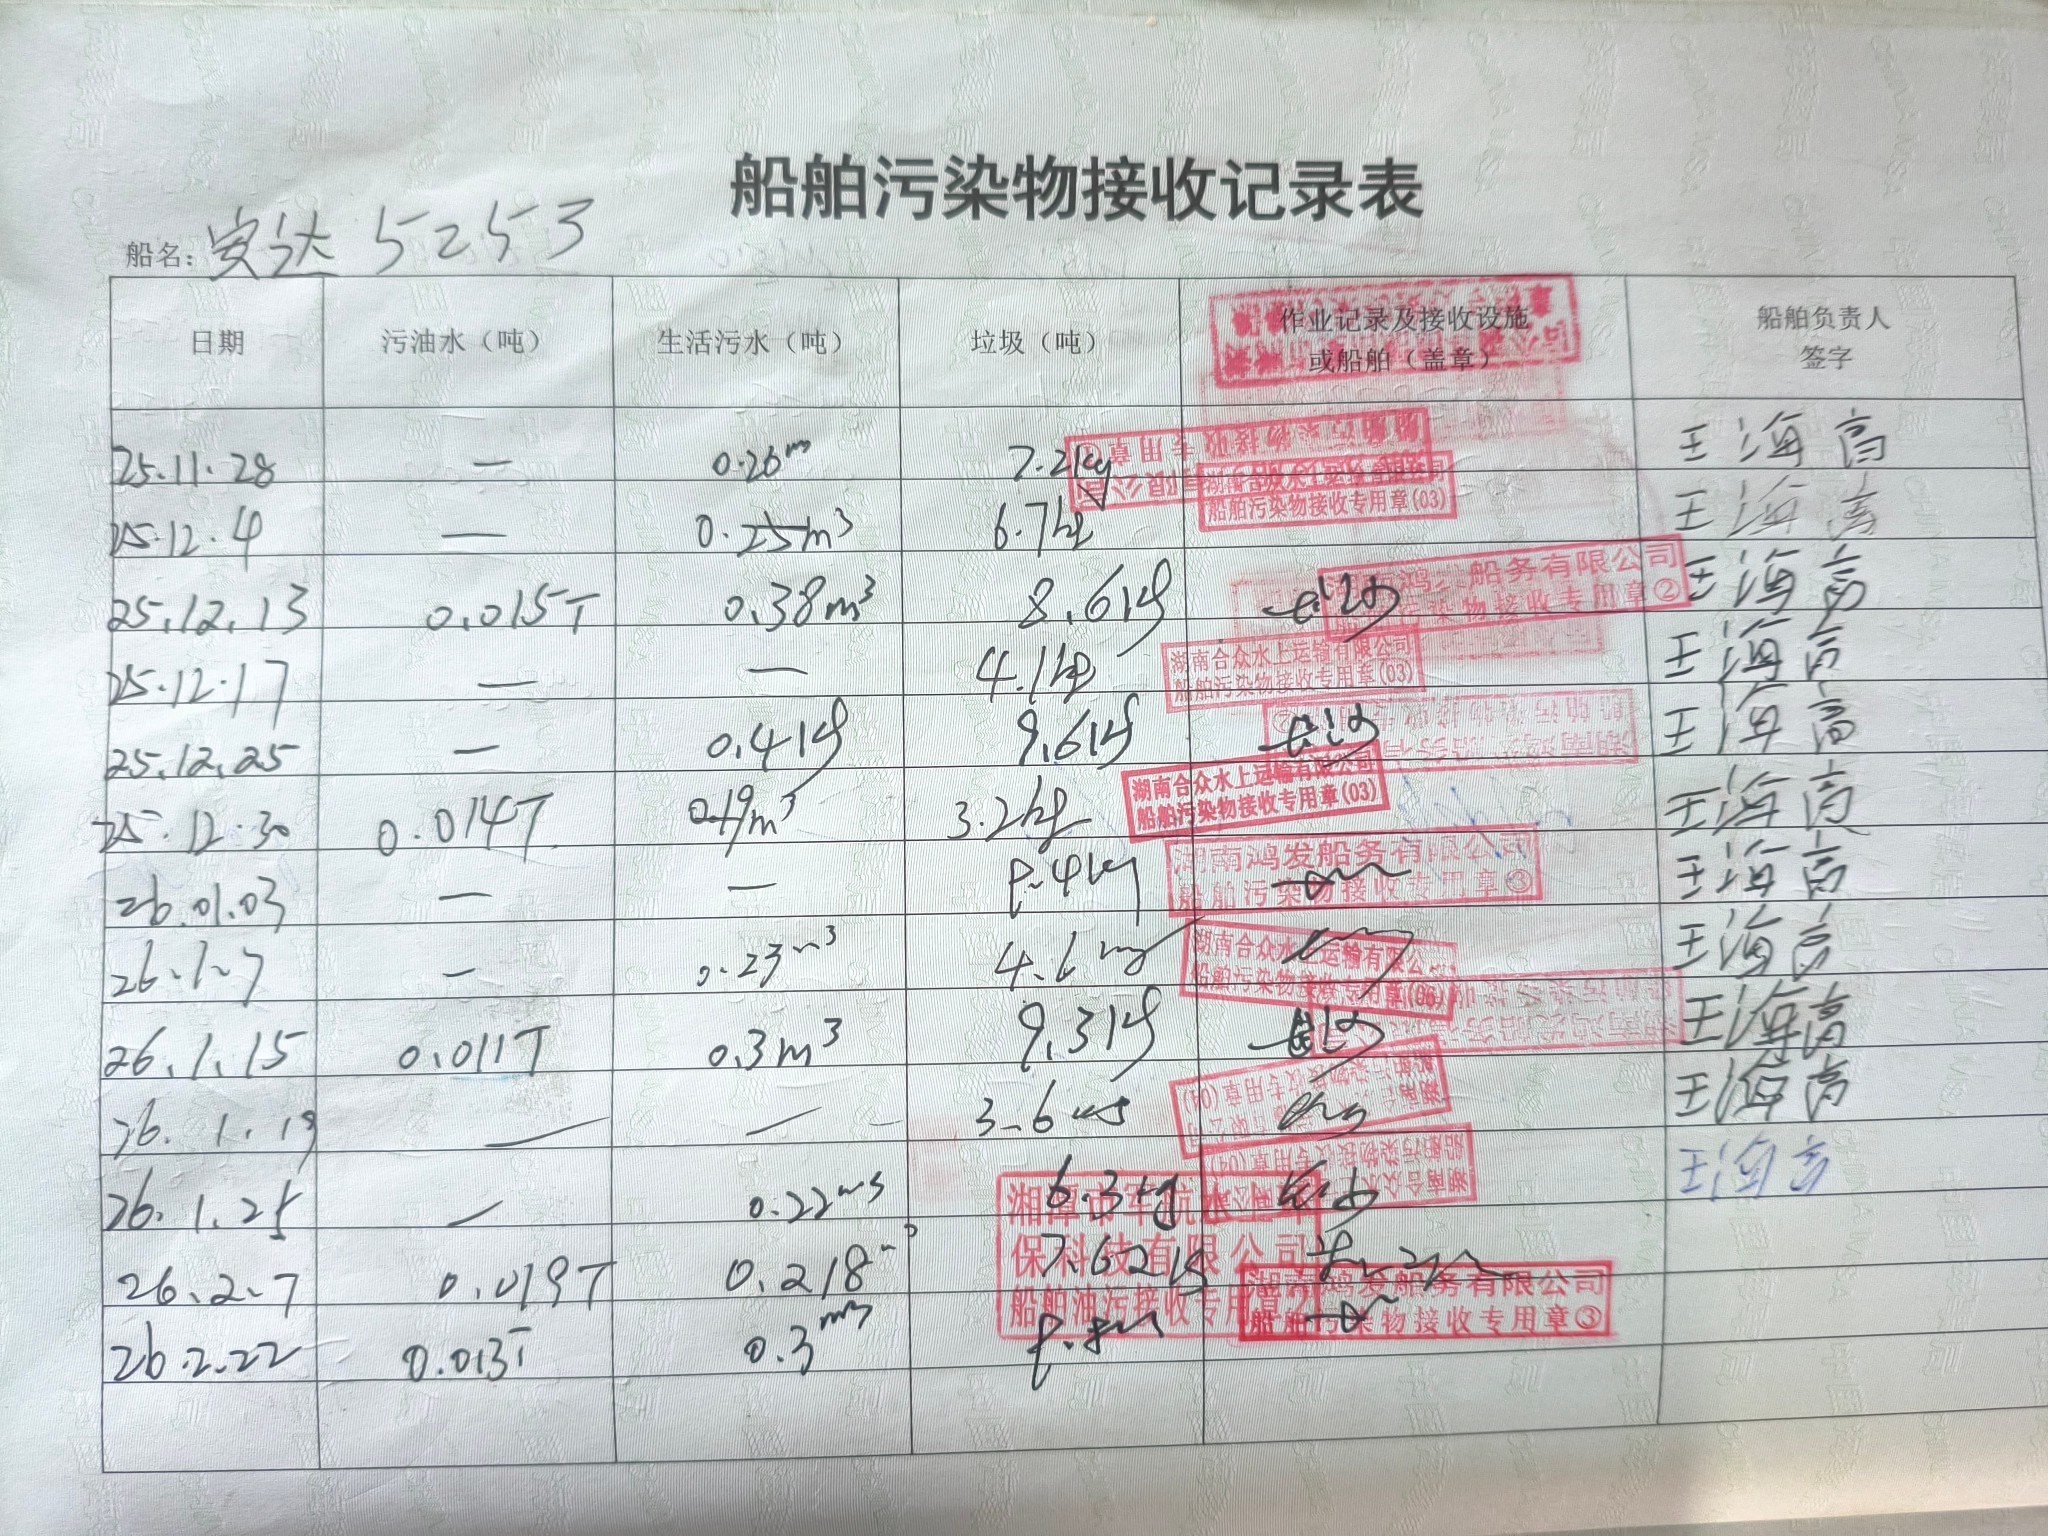 船舶污染物接收记录表
船名：安达 5253
日期 污油水（吨） 生活污水（吨） 垃圾（吨） 作业记录及接收设施 或船舶（盖章） 船舶负责人 签字
25.11.28 — 0.26 7.2kg 湖南合众水上运输有限公司 船舶污染物接收专用章(03) 王海高
25.12.4 — 0.25m³ 6.7kg 王海高
25.12.13 0.015T 0.38m³ 8.6kg 船务有限公司 污染物接收专用章② 王海高
25.12.17 — — 4.1kg 湖南合众水上运输有限公司 船舶污染物接收专用章(03) 王海高
25.12.25 — 0.41 9.6kg 王海高
25.12.30 0.014T 0.19m³ 3.2kg 湖南合众水上运输有限公司 船舶污染物接收专用章(03) 王海高
26.01.03 — — 湖南鸿发船务有限公司 船舶污染物接收专用章③ 王海高
26.1.7 — 0.23m³ 湖南合众水上运输有限公 船舶污染物接收专用章(06) 王海高
26.1.15 0.011T 0.3m³ 9.3kg 王海高
26.1.19 — — 3.6 王海高
26.1.25 — 0.22m³ 6.3kg 王海高
26.2.7 0.019T 0.218 7.62kg 湘潭市军航水 保科技有限公司 船舶油污接收专用章
26.2.22 0.013T 0.3m³ 湖南鸿发船务有限公司 船舶污染物接收专用章③